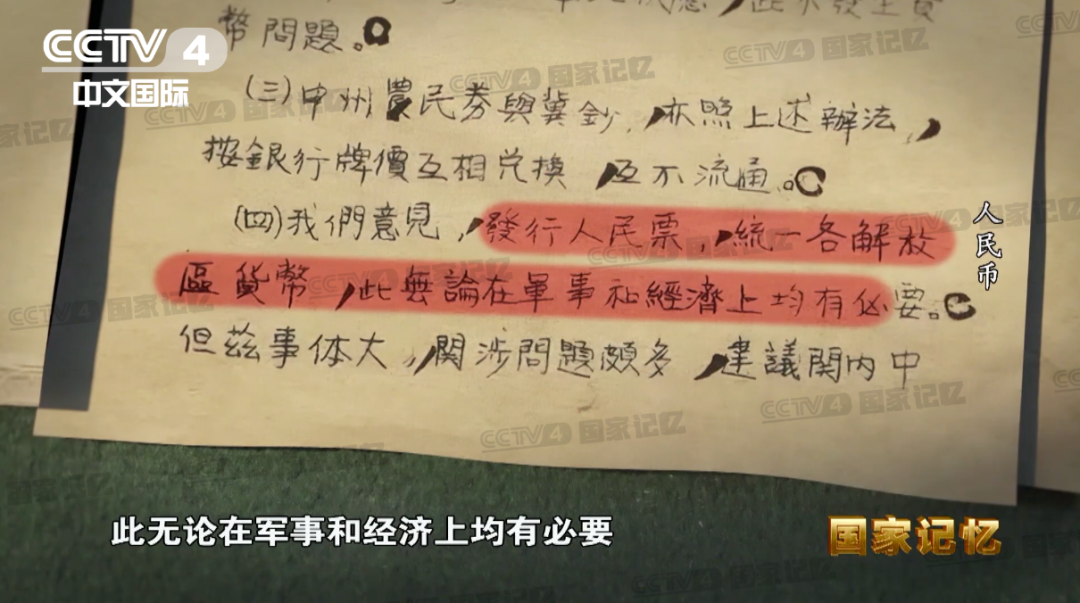 CCTV 4
中文国际
幣問題。
(三)中州農民券與冀鈔,亦照上述辦法,
按銀行牌價互相兌換,互不流通。
(四)我們意見,發行人民票,統一各解放
區貨幣,此無論在軍事和經濟上均有必要。
但茲事体大,関涉問題頗多,建議関内中
人民币
此无论在军事和经济上均有必要
国家记忆
CCTV4 国家记忆